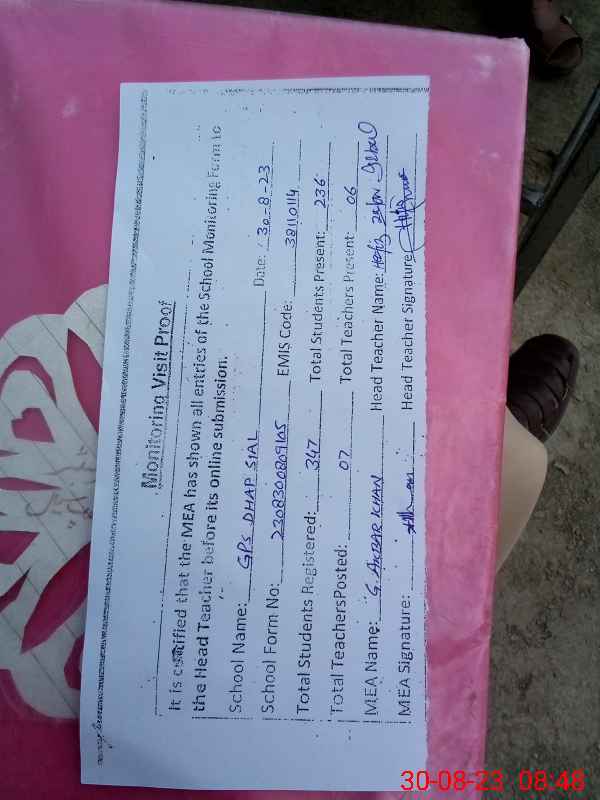 Monitoring Visit Proof
It is certified that the MEA has shown all entries of the School Monitoring Form to
the Head Teacher before its online submission.
School Name: GPS DHAP SIAL Date: 30-8-23
School Form No: 2308300809105 EMIS Code: 38110114
Total Students Registered: 347 Total Students Present: 236
Total TeachersPosted: 07 Total Teachers Present: 06
MEA Name: G. AKBAR KHAN Head Teacher Name: Hafiz
MEA Signature: Head Teacher Signature
30-08-23 08:48